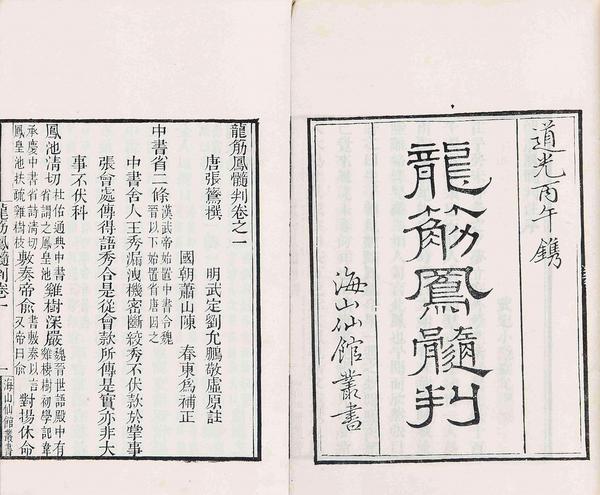 道光丙午鐫
龍筋鳳髓判
海山仙館叢書
龍筋鳳髓判卷之一
唐張鷟撰
明武定劉允鵬敬虛原註
國朝蕭山陳 春東為補正
中書省二條漢武帝始置中書令魏晉以下始置省唐因之
中書舍人王秀漏洩機密斷絞秀不伏款於掌事
張會處傳得語秀合是從會款所傳是實亦非大
事不伏科
鳳池清切杜佑通典中書省謂之鳳皇池雞樹深嚴魏晉世語殿中有雞棲樹初學記韋
承慶中書省詩清切鳳皇池扶疏雞樹枝敷奏帝俞書敷奏以言又帝曰俞對揚休命
龍筋鳳髓判卷一
一
海山仙館叢書